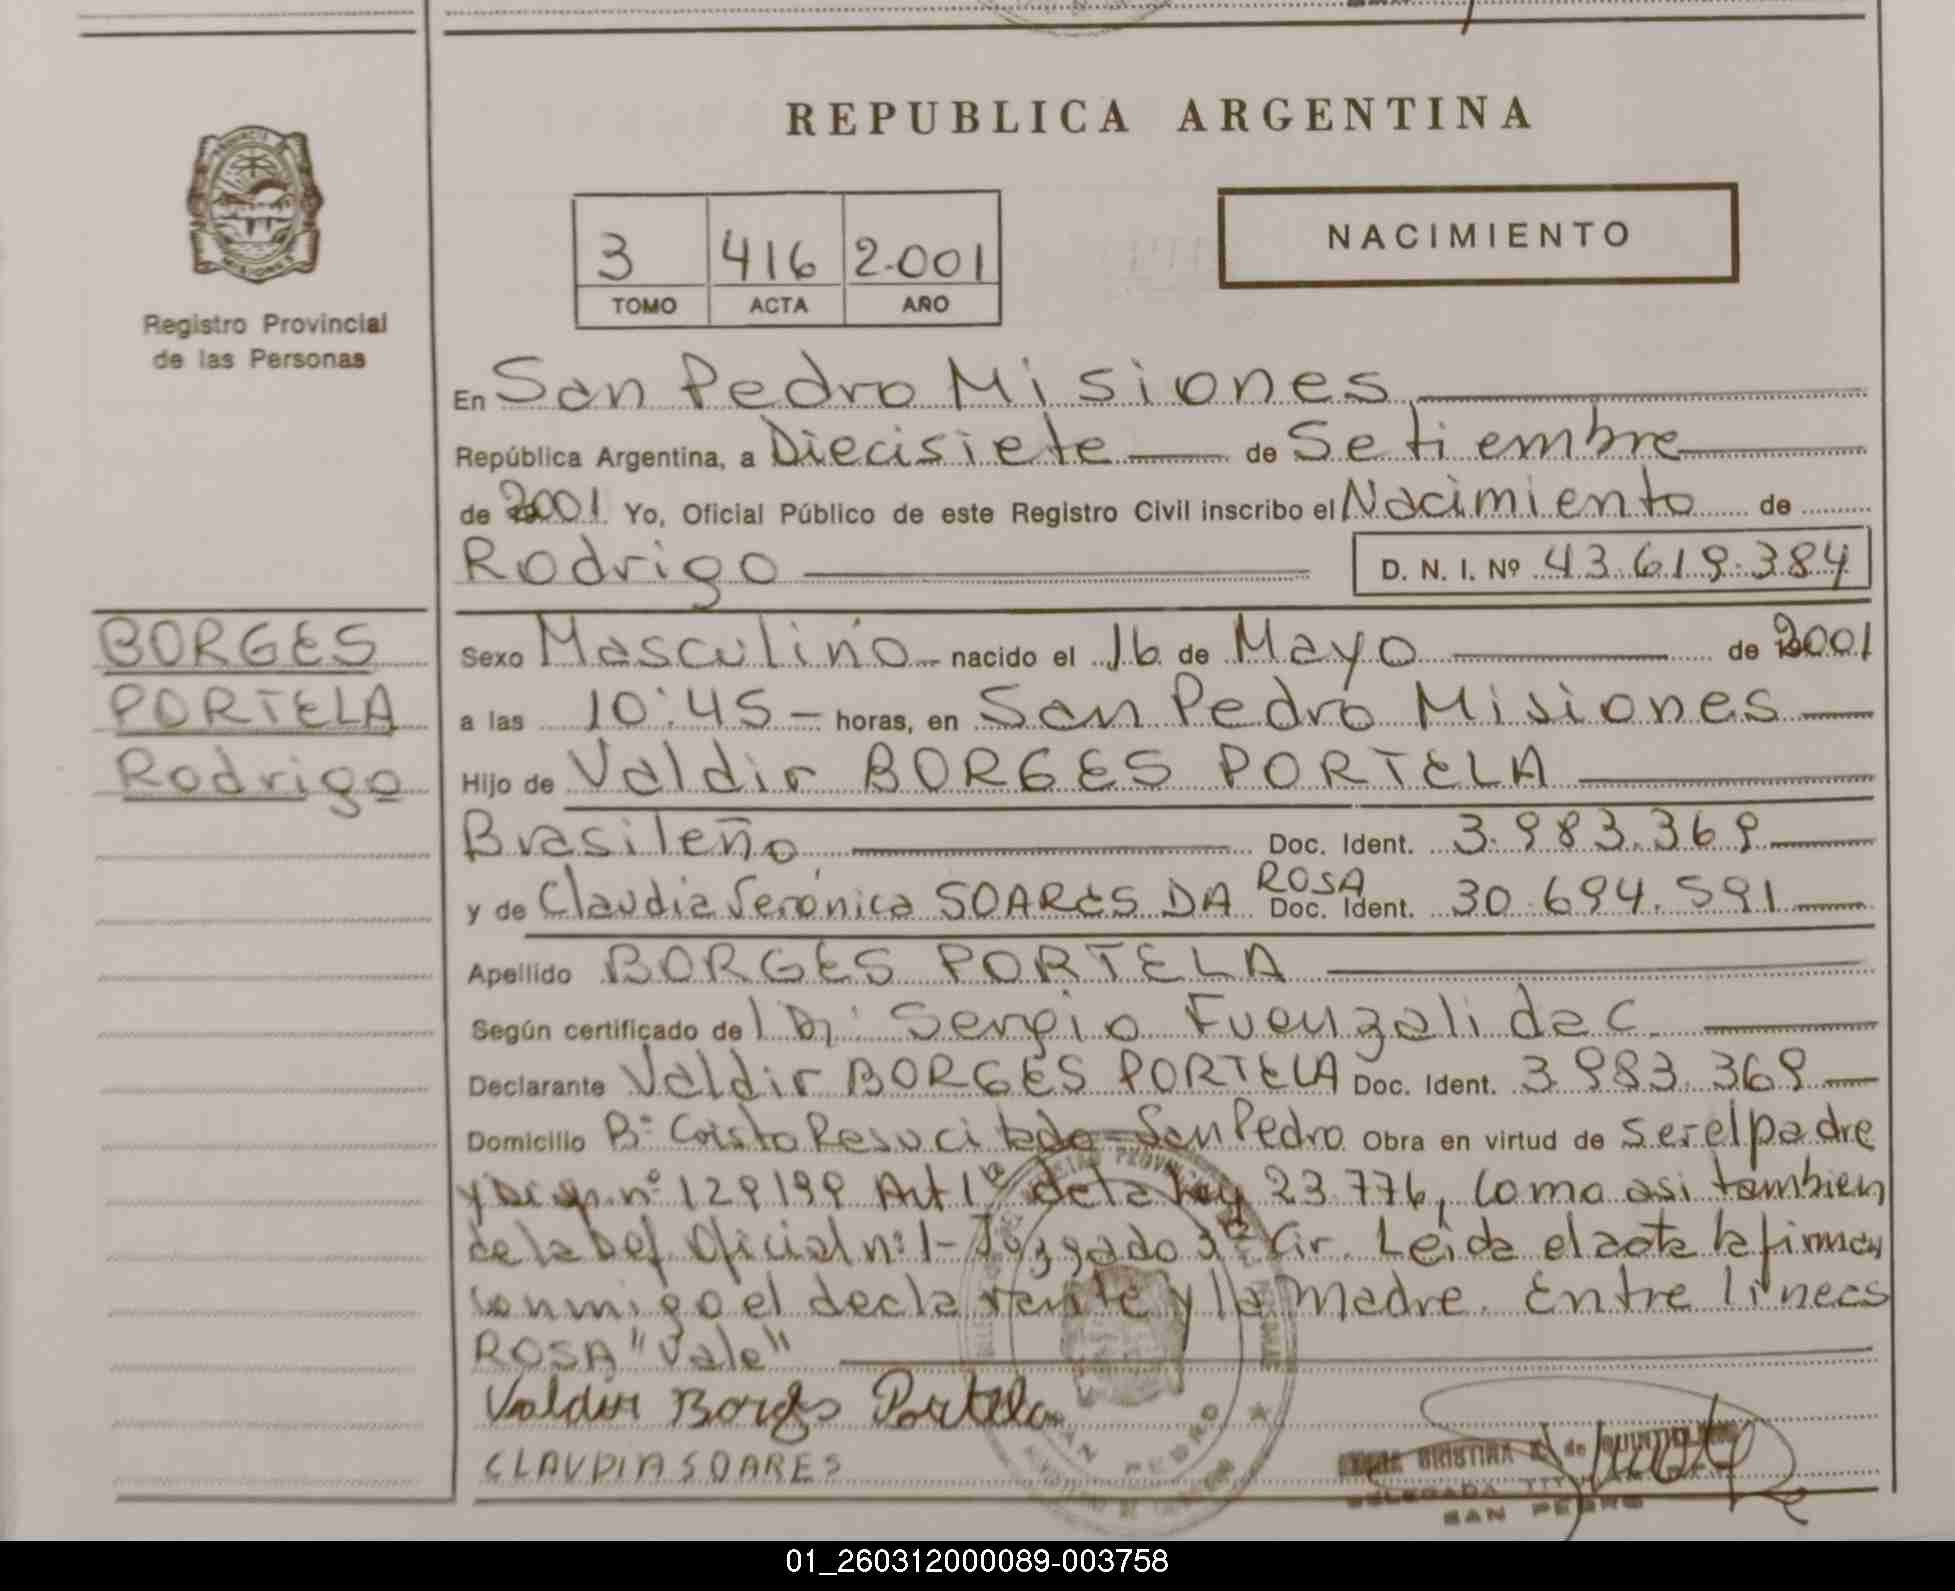 REPUBLICA ARGENTINA
NACIMIENTO
3 416 2.001
TOMO ACTA AÑO
MISIONES
Registro Provincial
de las Personas
En San Pedro Misiones
República Argentina, a Diecisiete de Setiembre
de 2001 Yo, Oficial Público de este Registro Civil inscribo el Nacimiento de
Rodrigo D. N. I. Nº 43.619.384
BORGES
PORTELA
Rodrigo
Sexo Masculino nacido el 16 de Mayo de 2001
a las 10:45 horas, en San Pedro Misiones
Hijo de Valdir BORGES PORTELA
Brasileño Doc. Ident. 3.983.369
y de Claudia Verónica SOARES DA ROSA Doc. Ident. 30.694.591
Apellido BORGES PORTELA
Según certificado de Dr. Sergio Fuenzalida C.
Declarante Valdir BORGES PORTELA Doc. Ident. 3.983.369
Domicilio Bº Cristo Resucitado - San Pedro Obra en virtud de ser el padre
y nº 129199 Art 1º de la Ley 23.776, como asi tambien
de la Def. Oficial nº 1 - Juzgado Cir. Leida el acta la firman
conmigo el declarante y la madre. Entre lineas
ROSA "Vale"
Valdir Borges Portela
CLAUDIA SOARES
SAN PEDRO
CRISTINA
DELEGADA TIT
SAN PEDRO
01_260312000089-003758